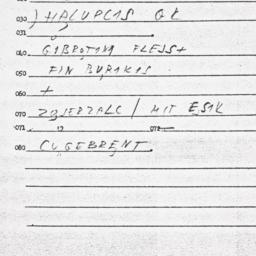 030 ) HALUPCIS GK
031
040 GIBROTINI FLEJS+
050 FIN BURIKIS
060 +
070 ZOJERZALC / MIT ESIK
071 072
080 CUGEBRENT.